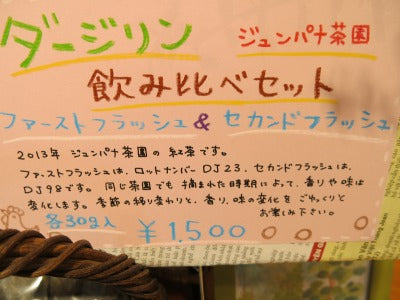 ダージリン
ジュンパナ茶園
飲み比べセット
ファーストフラッシュ & セカンドフラッシュ
2013年 ジュンパナ茶園の 紅茶です。
ファーストフラッシュは、ロットナンバー DJ23、セカンドフラッシュは、
DJ98です。同じ茶園でも 摘まれた時期によって、香りや味は
変化します。季節の移り変わりと、香り、味の変化を ごゆっくりと
お楽しみ下さい。
各30g入
¥1,500